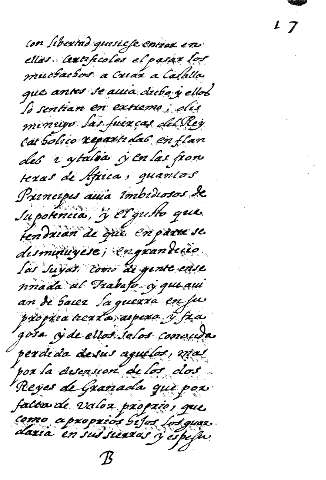 17
con libertad quisiese entrar en
ellas. Certificoles el pasar los
muchachos a criar a Castilla
que antes se auia dicho, y ellos
lo sentian en extremo; dis
minuyo las fuerças del Rey
Catholico repartidas en flan
des e ytalia y en las fron
teras de Africa, quantos
Principes auia imbidiosos de
su potencia, y el gusto que
tendrian de que en parte se
desminuyese; engrandecio
las suyas como de gente ense
nnada al trabajo y que aui
an de hacer la guerra en su
propria tierra, aspera y fra
gosa y de ellos solos conocida
perdida de sus aguelos, mas
por la disension de los dos
Reyes de Granada que por
falta de valor proprio, que
como a proprios hijos los guar
daria en sus sierras y espesu
B